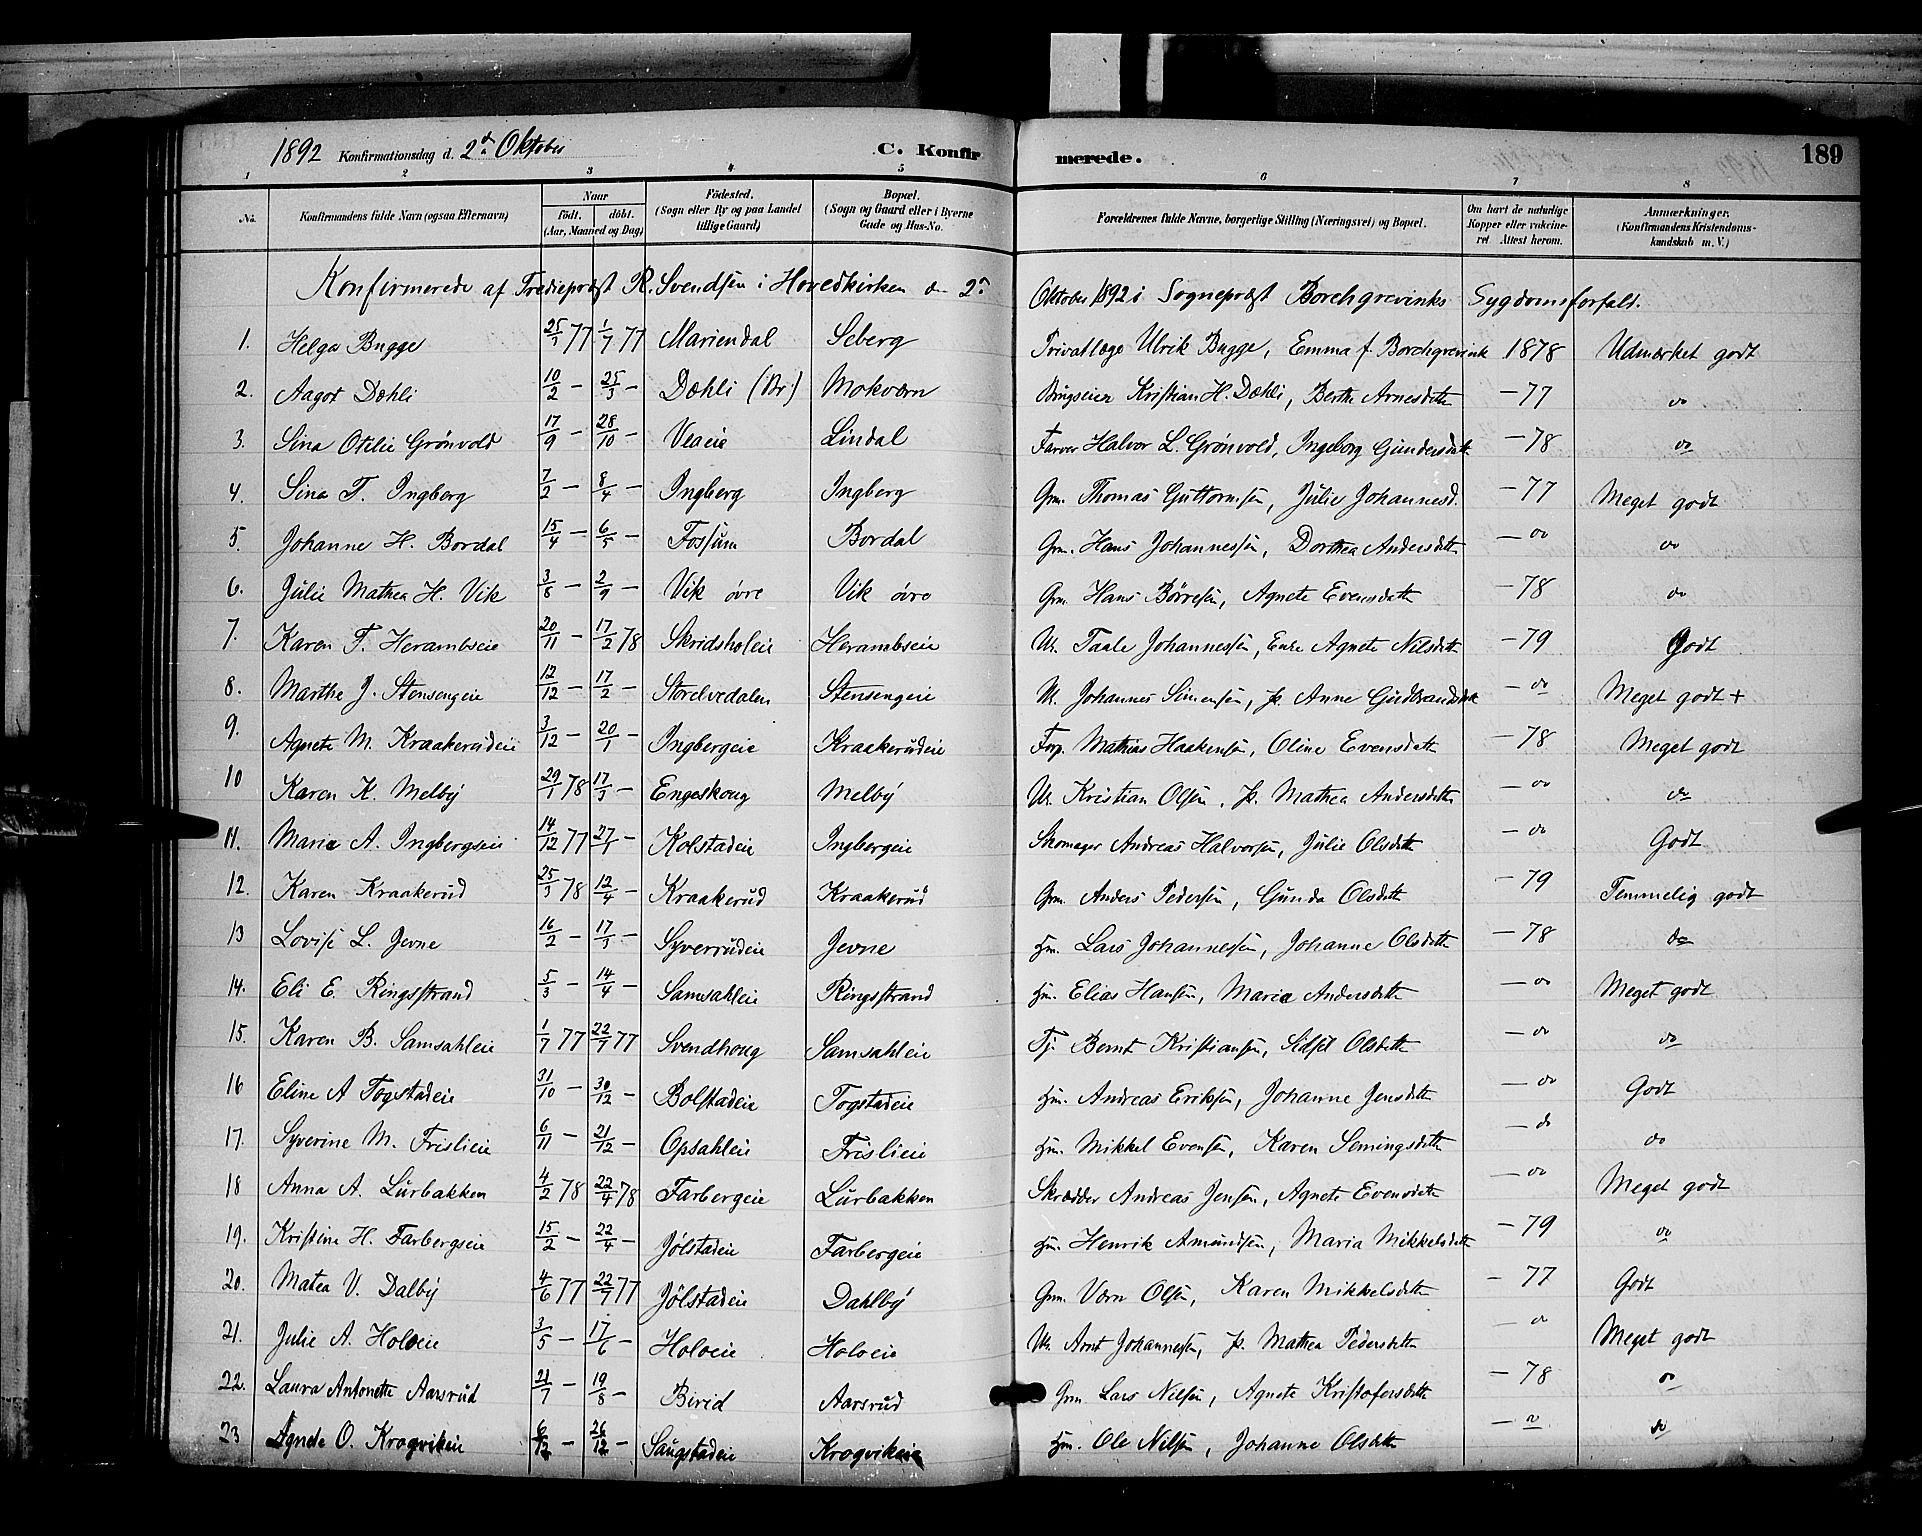 1892 Konfirmationsdag d. 2d Oktober C. Konfirmerede. 189
1 2 3 4 5 6 7 8
No. Konfirmandens fulde Navn (ogsaa Efternavn) Naar født. døbt. (Aar, Maaned og Dag) Fødested. (Sogn eller By og paa Landet tillige Gaard) Bopæl. (Sogn og Gaard eller i Byerne Gade og Hus-No. Forældrenes fulde Navne, borgerlige Stilling (Næringsvei) og Bopæl. Om havt de naturlige Kopper eller vakcineret. Attest herom. Anmærkninger. (Konfirmandens Kristendomskundskab m. V.)
Konfirmerede af Trediepræst R. Svendsen i Hovedkirken den 2n Oktober 1892 i Sognepræst Borchgrevinks Sygdomsforfald.
1. Helga Bugge 77 1/7 77 Mariendal Seberg Privatlæge Ulrik Bugge, Emma f. Borchgrevink 1878 Udmærket godt
2. Aagot Dæhli 10/2 — 25/3 — Dæhli (Br.) Mokværn Brugseier Kristian H. Dæhli, Berthe Arnesdtt. — 77 do
3. Sina Otilie Grönvold 17/9 — 28/10 — Veaeie Lindal Farver Halvor L. Grönvold, Ingeborg Gundersdtt. — 78 do
4. Sina T. Ingberg 7/2 — 8/4 — Ingberg Ingberg Grm. Thomas Guttormsen, Julie Johannesd. — 77 Meget godt
5. Johanne H. Bordal 15/4 — 6/5 — Fossum Bordal Grm. Hans Johannessen, Dorthea Andersdtt. — do do
6. Julie Mathea H. Vik 3/8 — 2/9 — Vik øvre Vik øvre Grm. Hans Börresen, Agnete Evensdatt. — 78 do
7. Karen T. Herambseie 20/11 — 17/2 78 Skridsholeie Herambseie Um. Taale Johannessen, Enke Agnete Nilsdtt. — 79 Godt
8. Marthe J. Stensengeie 12/12 — 17/2 — Storelvedalen Stensengeie U. Johannes Simensen, p. Anne Gudbrandsdtt. — do Meget godt +
9. Agnete M. Kraakerudeie 3/12 — 20/1 — Ingbergeie Kraakerudeie Forp. Mathias Haakensen, Oline Evensdatt. — 78 Meget godt
10 Karen K. Melby 29/1 78 17/3 — Engeskoug Melby Um. Kristian Olsen, p. Mathea Andersdtt. — do do
11. Maria A. Ingbergseie 14/12 77 27/1 — Kolstadeie Ingbergeie Skomager Andreas Halvorsen, Julie Olsdatt. — do Godt
12. Karen Kraakerud 25/3 78 12/4 — Kraakerud Kraakerud Grm. Anders Pedersen, Gunda Olsdatt. — 79 Temmelig godt
13 Lovise L. Jevne 16/2 — 17/3 — Syverrudeie Jevne Hm. Lars Johannessen, Johanne Olsdtt. — 78 do
14. Eli E. Ringsstrand 5/3 — 14/4 — Samsahleie Ringsstrand Hm. Elias Hansen, Maria Andersdatt. — do Meget godt
15. Karen B. Samsahleie 1/7 77 22/7 77 Svendhoug Samsahleie Tj. Bernt Kristiansen, Sidsel Olsdatt. — do do
16 Eline A Togstadeie 31/10 — 30/12 — Bolstadeie Togstadeie Hm. Andreas Eriksen, Johanne Jensdtt. — do Godt
17. Syverine M. Frislieie 6/11 — 21/12 — Opsahleie Frislieie Hm. Mikkel Evensen, Karen Semingsdtt. — do do
18 Anna A. Lurbakken 4/2 78 22/4 78 Farbergeie Lurbakken Skrædder Andreas Jensen, Agnete Evensdtt. — do Meget godt
19. Kristine H. Farbergseie 15/2 — 22/4 — Jölstadeie Farbergeie Hm. Henrik Amundsen, Maria Mikkelsdtt. — 79 do
20. Matea V. Dalby 4/6 77 22/7 77 Jölstadeie Dahlby Grm. Vorn Olsen, Karen Mikkelsdtt. — 77 Godt
21. Julie A. Holoeie 3/5 — 17/6 — Holoeie Holoeie Um. Arnt Johannessen, p. Mathea Pedersdtt. — do Meget godt
22. Laura Antonette Aarsrud 21/7 — 19/8 — Birid Aarsrud Grm Lars Nilsen, Agnete Kristofersdatt. — 78 do
23 Agnete O. Krogvikeie 6/12 — 26/12 — Saugstadeie Krogvikeie Hm. Ole Nilsen, Johanne Olsdtt. — do do